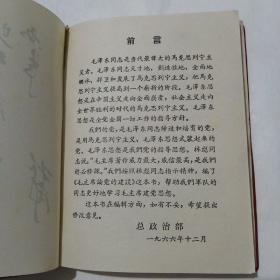 前言
毛泽东同志是当代最伟大的马克思列宁主
义者。毛泽东同志天才地、创造性地、全面地
继承、捍卫和发展了马克思列宁主义，把马克
思列宁主义提高到一个崭新的阶段。毛泽东思
想是在帝国主义走向全面崩溃，社会主义走向
全世界胜利的时代的马克思列宁主义。毛泽东
思想是全党全国一切工作的指导方针。
我们的党，是毛泽东同志缔造和培育的党，
是用马克思列宁主义、毛泽东思想武装起来的
党。毛泽东思想是我们党的指导思想。林彪同
志说“毛主席著作威力最大，威信最高，是我们的
必修课”。我们按照林彪同志指示精神，编了
《毛主席论党的建设》这本书，帮助我们军队的
同志更好地学习毛主席建党思想。
这本书在编辑方面，如有不妥，希望提出
修改意见。
总政治部
一九六六年十二月